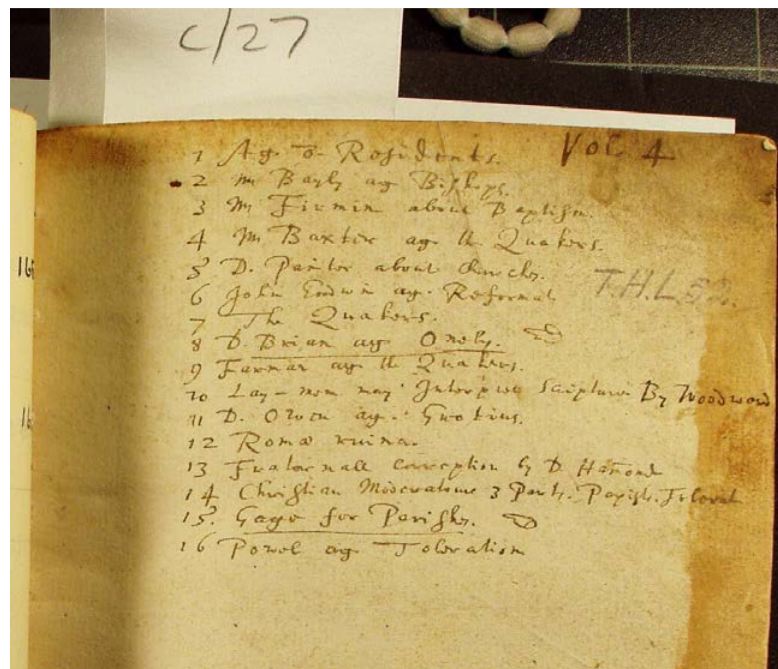 c/27
Vol 4
1 Ag. Residents.
2 Mr Bayly ag Bishops.
3 Mr Firmin about Baptism.
4 Mr Baxter ag the Quakers.
5 D. Painter about Churches.
T.H.L.52.
6 John Goodwin ag. Reformat
7 The Quakers.
8 D. Brian ag Onely.
9 Farmar ag the Quakers.
10 Lay-men may Interpret Scripture By Woodword
11 D. Owen ag. Grotius.
12 Romæ ruina.
13 Fraternall Correption by D. Hamond
14 Christian Moderatione 3 Parts. Papist.
15. Gage for Parishes.
16 Powel ag Toleration
16
16